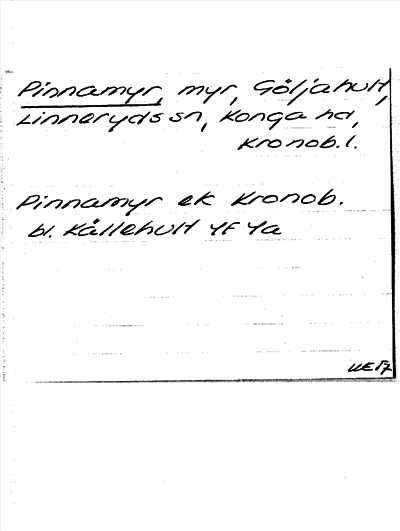 Pinnamyr, myr, Göljahult,
Linneryds sn, Konga hd,
Kronob.l.
Pinnamyr ek Kronob.
bl. Kållehult 4F 4a